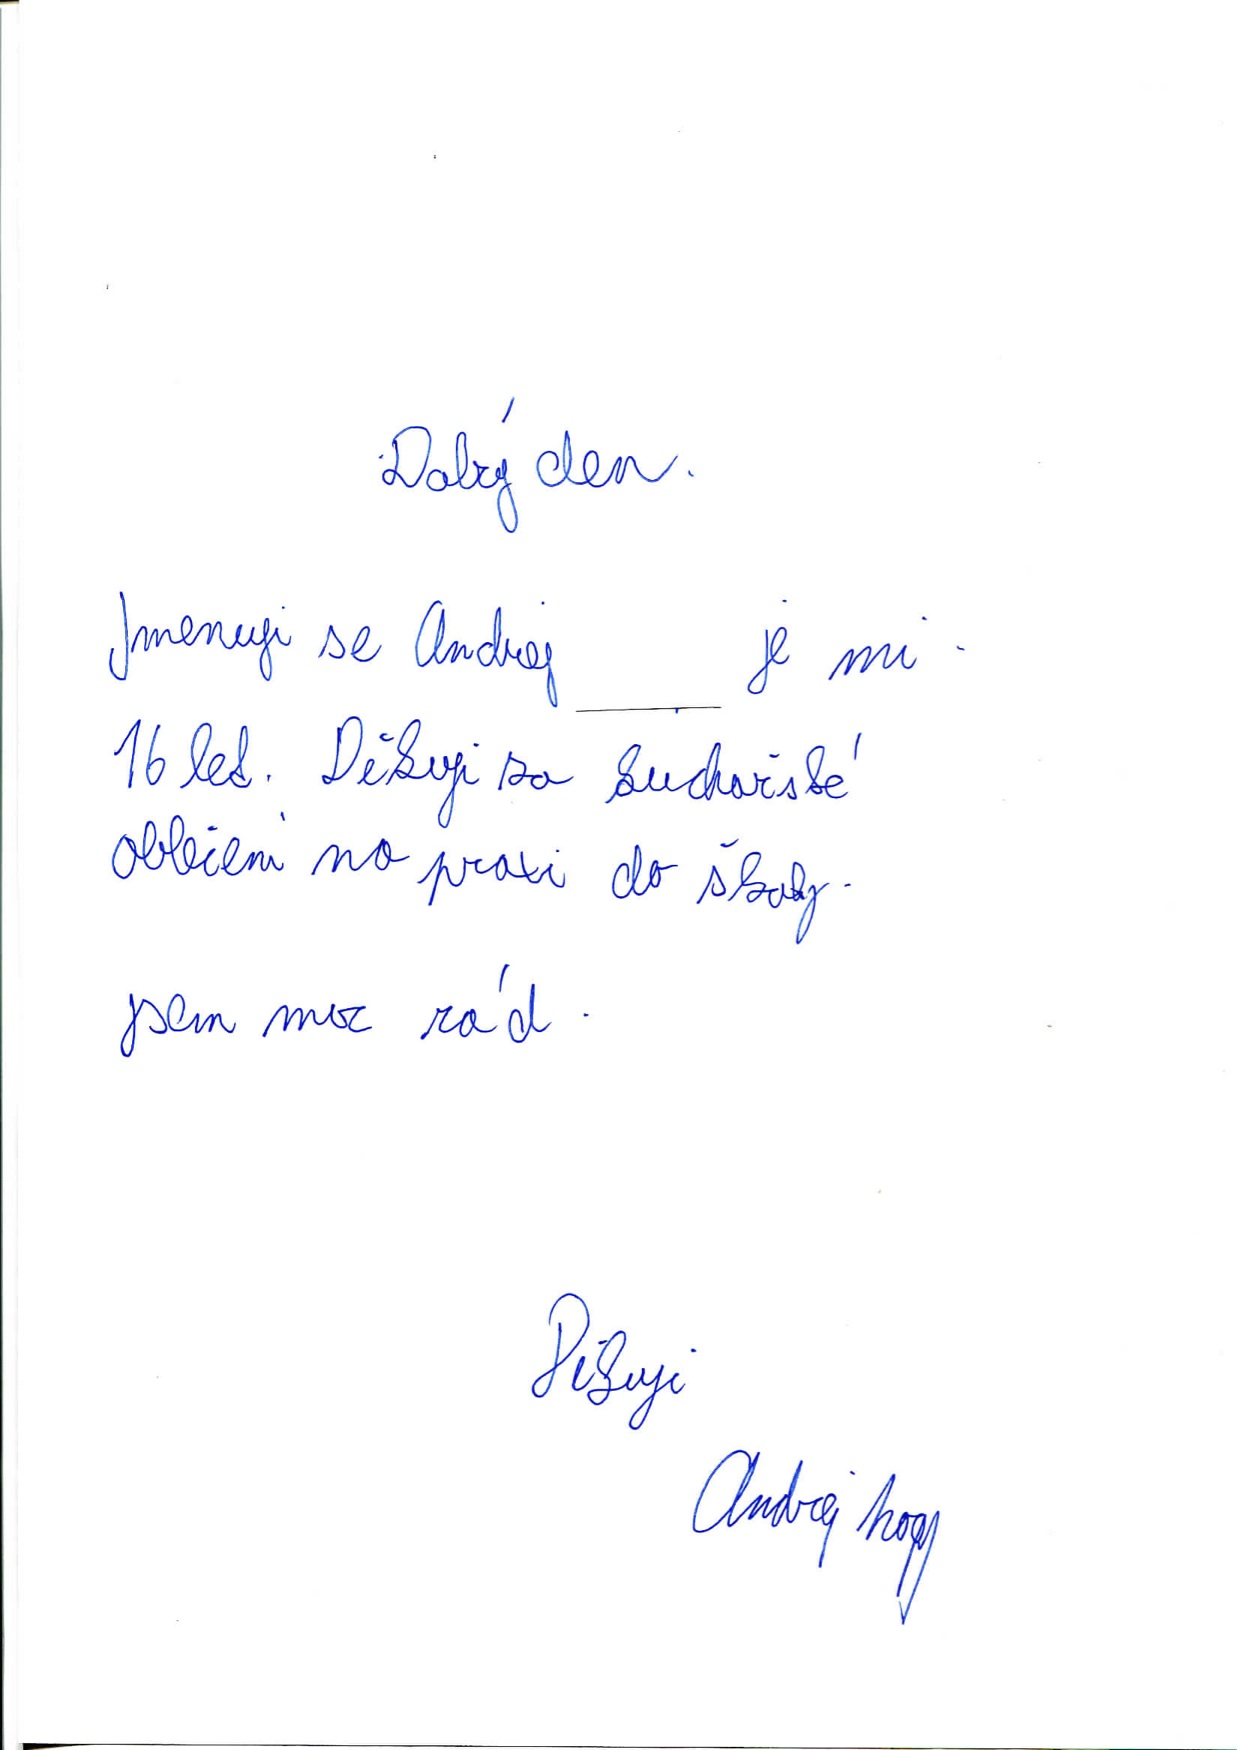 Dobrý den.
Jmenuji se Andrej je mi
16 let. Děkuji za kuchařské
oblečení na praxi do školy.
jsem moc rád.
Děkuji
Andrej